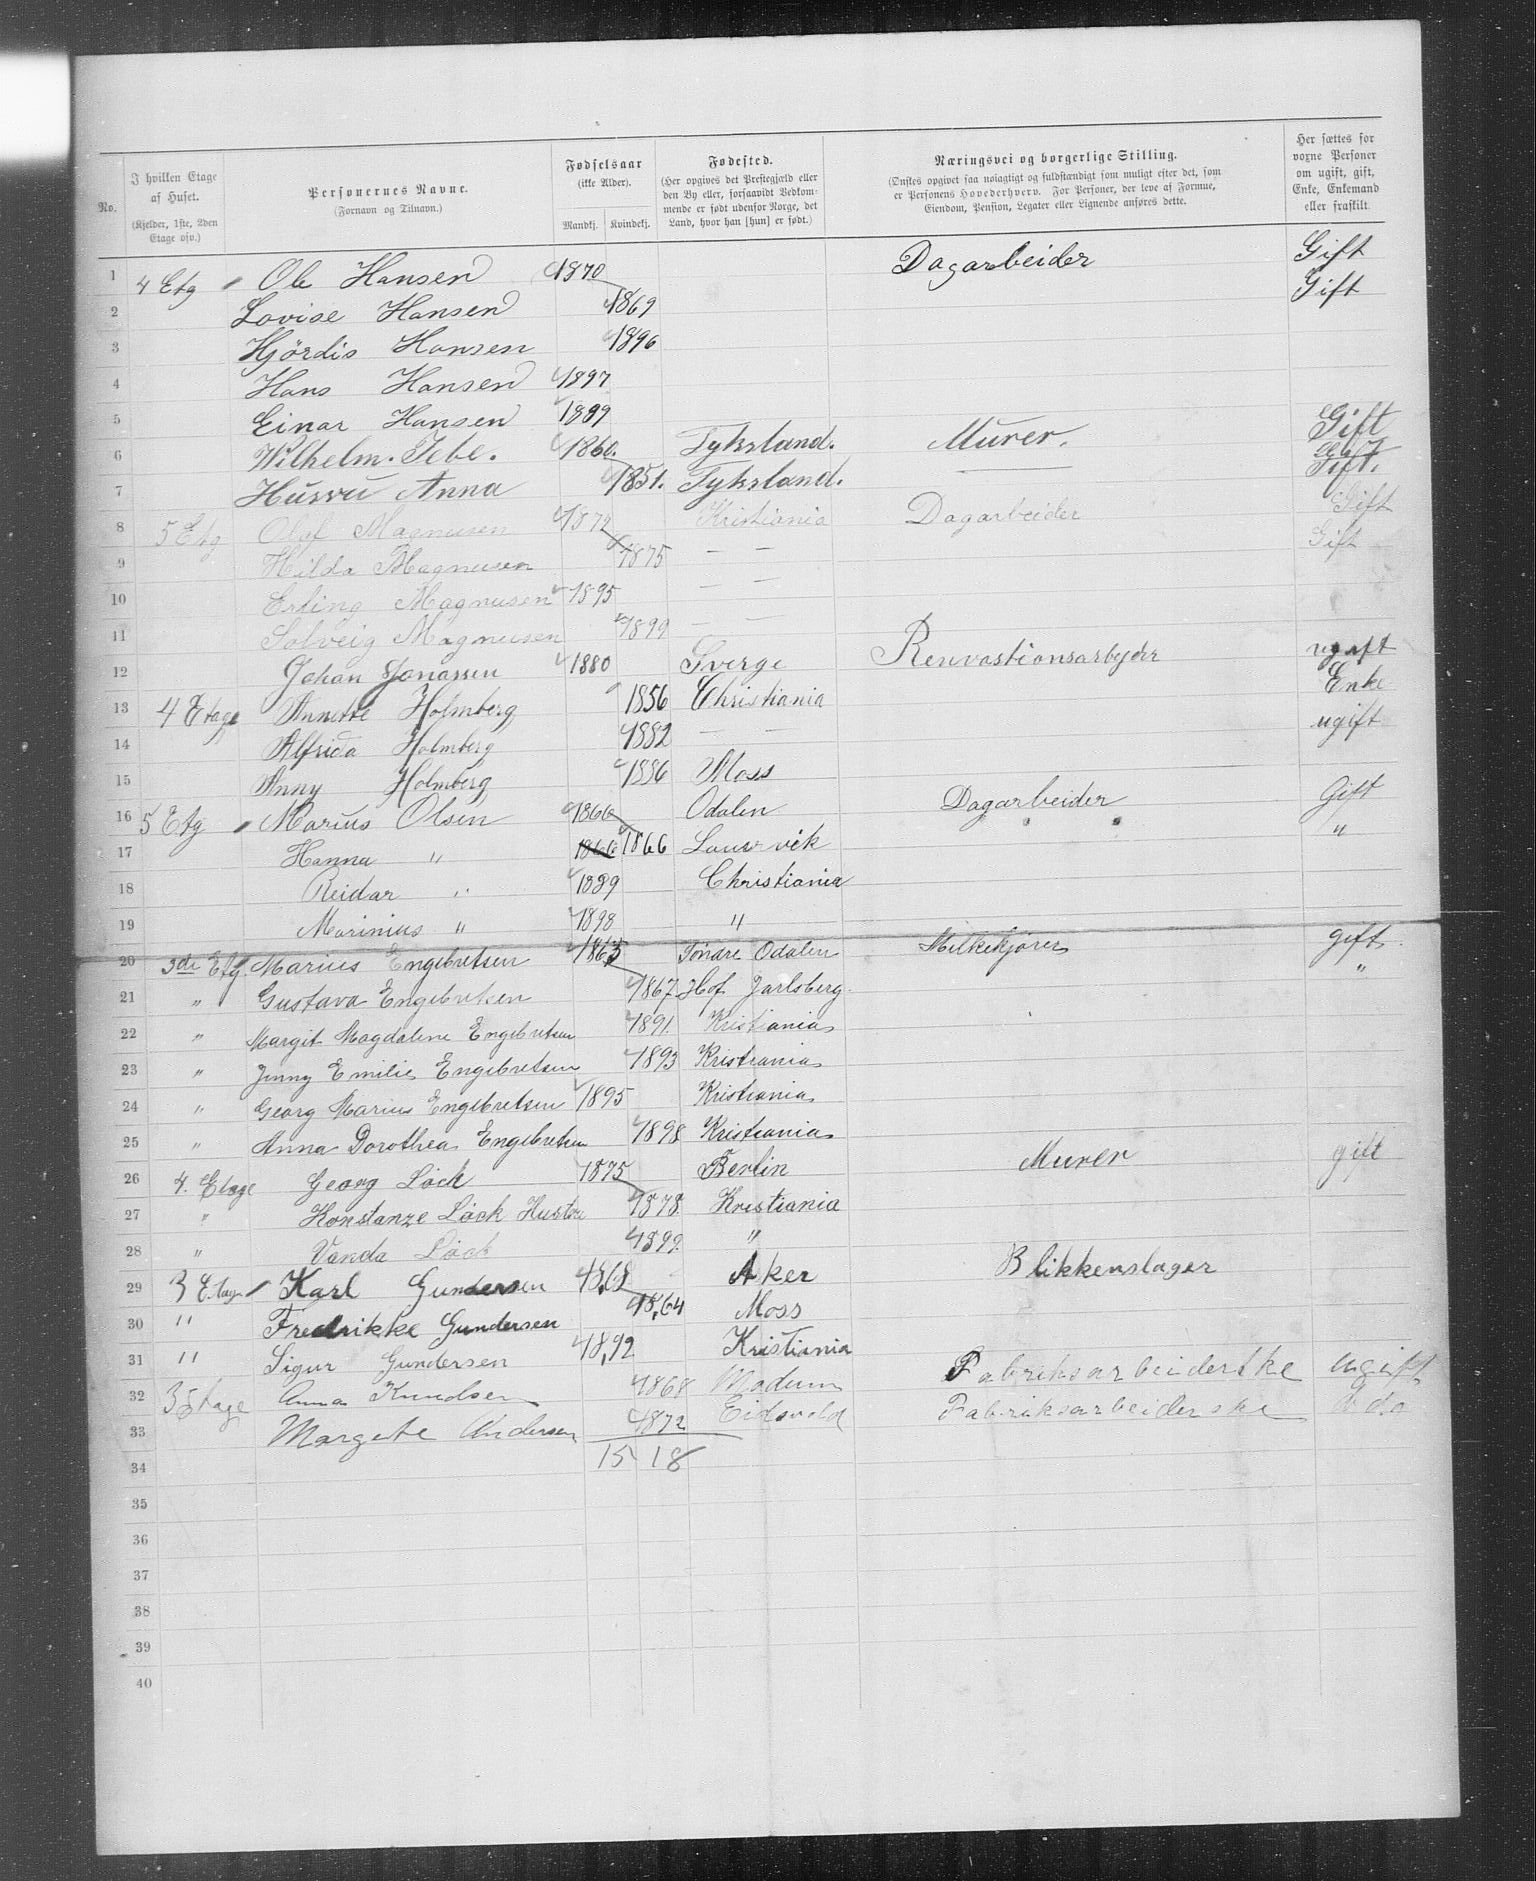 No.
I hvilken Etage af Huset.
(Kjelder, 1ste, 2den Etage osv.)
Personernes Navne.
(Fornavn og Tilnavn.)
Fødselsaar
(ikke Alder).
Mandkj. Kvindekj.
Fødested.
(Her opgives det Prestegjæld eller den By eller, forsaavidt Bedkommende er født udenfor Norge, det Land, hvor han [hun] er født.)
Næringsvei og borgerlige Stilling.
(Ønskes opgivet saa nøiagtigt og fuldstændigt som muligt efter det, som er Personens Hovederhverv. For Personer, der leve af Formue, Eiendom, Pension, Legater eller Lignende anføres dette.
Her sættes for vorne Personer om ugift, gift, Enke, Enkemand eller fraskilt.
1 4 Etg Ole Hansen 1870 Dagarbeider Gift
2 Lovise Hansen 1869 Gift
3 Hjördis Hansen 1896
4 Hans Hansen 1897
5 Einar Hansen 1899
6 Wilhelm. Tebe. 1860. Tyksland. Murer. Gift
7 Husvu Anna 1851. Tyksland. Gift.
8 5 Etg Olaf Magnusen 1872 Kristiania Dagarbeider Gift
9 Hilda Magnusen 1875 — — Gift
10 Erling Magnusen 1895 — —
11 Solveig Magnusen 1899 — —
12 Johan Jonassen 1880 Sverge Renvastionsarbejder ugift
13 4 Etage Annette Holmberg 1856 Christiania Enke
14 Alfrida Holmberg 1882 — — ugift
15 Anny Holmberg 1886 Moss
16 5 Etg Marius Olsen 1866 Odalen Dagarbeider Gift
17 Hanna " 1866 1866 Laurvik "
18 Reidar " 1889 Christiania
19 Marinius " 1898 "
20 3de Etg. Marius Engebretsen 1863 Søndre Odalen Melkekjører gift
21 " Gustava Engebretsen 1867. Hof Jarlsberg. "
22 " Margit Magdalene Engebretsen 1891. Kristiania
23 " Jenny Emilie Engebretsen 1893 Kristiania
24 " Georg Marius Engebretsen 1895 Kristiania
25 " Anna Dorothea Engebretsen 1898 Kristiania
26 4. Etage Georg Löck 1875 Berlin Murer gift
27 " Konstanze Löck Hustru 1878 Kristiania
28 " Vanda Löck 1899. "
29 3 Etage Karl Gundersen 1868 Aker Blikkenslager
30 " Fredrikke Gundersen 1864 Moss
31 " Sigur Gundersen 1892 Kristiania
32 3 Etage Anna Knudsen 1868 Modum Fabriksarbeiderske ugift
33 Margete Andersen 1872 Eidsvold Fabriksarbeiderske do
34 15 18
35
36
37
38
39
40